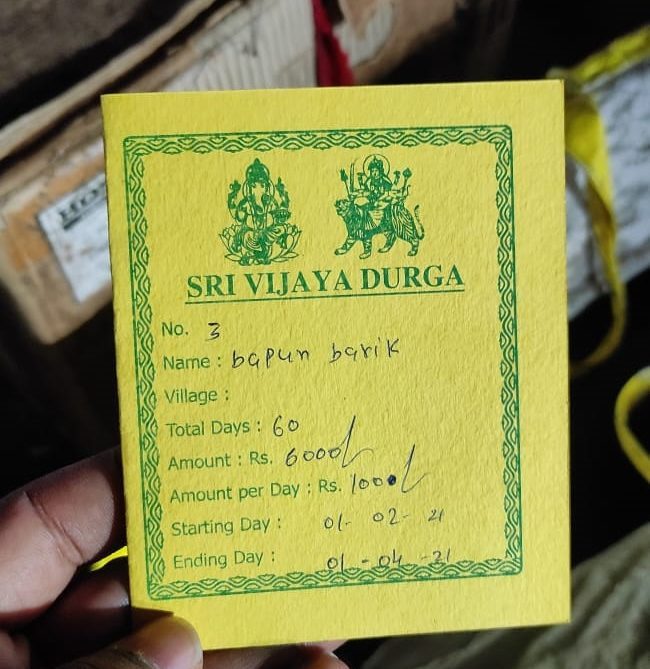 SRI VIJAYA DURGA
No. 3
Name : bapun barik
Village :
Total Days : 60
Amount : Rs. 6000/
Amount per Day : Rs. 1000/
Starting Day : 01- 02- 21
Ending Day : 01 - 04 - 21